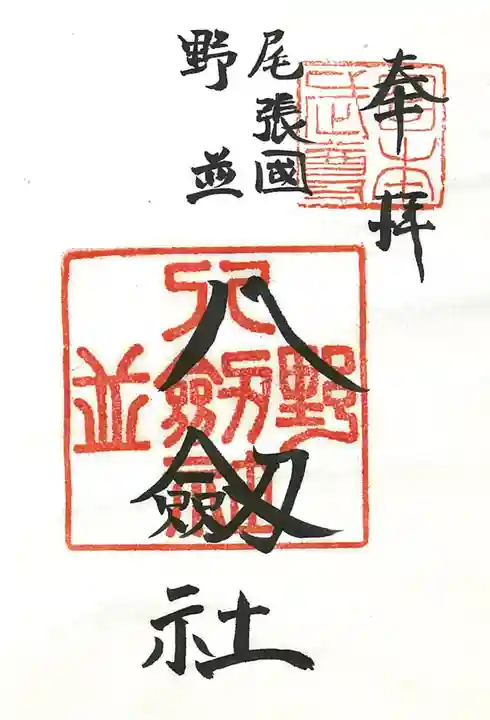 奉拝
尾張國
野並
八劔社
野
八劔社
並